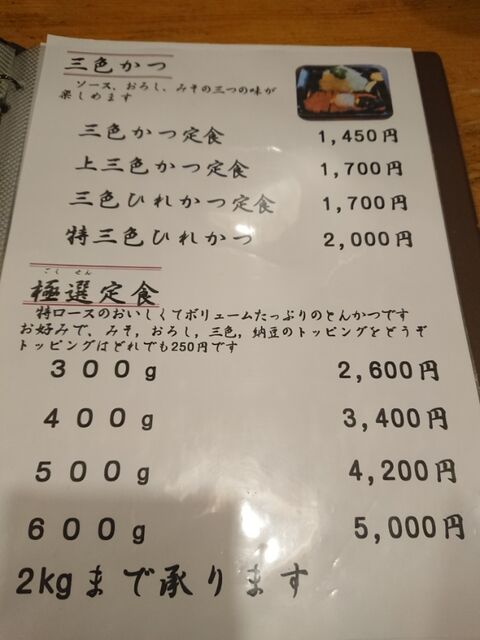 三色かつ
ソース、おろし、みその三つの味が
楽しめます
三色かつ定食 1,450円
上三色かつ定食 1,700円
三色ひれかつ定食 1,700円
特三色ひれかつ 2,000円
ごくせん
極選定食
特ロースのおいしくてボリュームたっぷりのとんかつです
お好みで、みそ，おろし，三色，納豆のトッピングをどうぞ
トッピングはどれでも250円です
300g 2,600円
400g 3,400円
500g 4,200円
600g 5,000円
2kgまで承ります